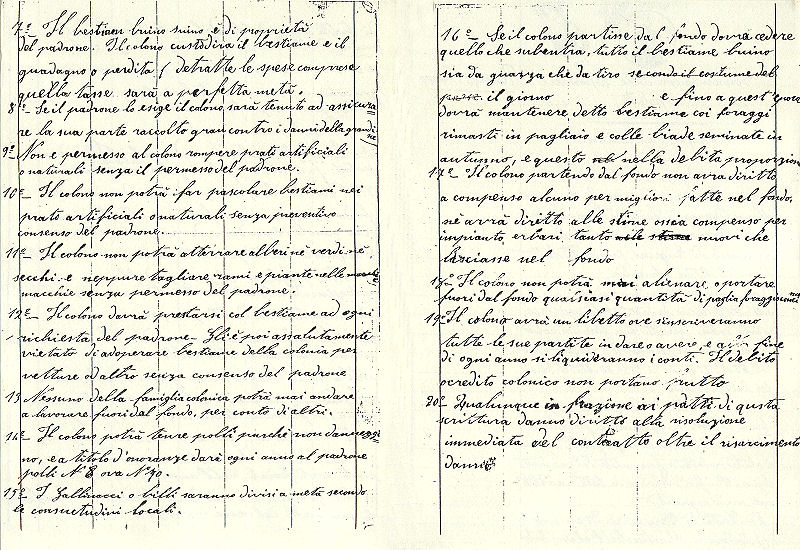 7º Il bestiam buino suino, è di proprietà
del padrone. Il colono custodira il bestiame e il
guadagno o perdita (detratte le spese comprese
quella tasse sarà a perfetta metà.
8º Se il padrone lo esige il colono sarà tenuto ad assicura
re la sua parte raccolto gran contro i danni della grandi
ne
9º Non e permesso al colono rompere prato artificiali
o naturali senza il permesso del padrone.
10º Il colono non potrà far pascolare bestiami nei
prato artificiali o naturali senza preventivo
consenso del padrone.
11º Il colono non potrà atterrare alberi nè verdi nè
secchi e neppure tagliare rami e piante nelle
macchie senza permesso del padrone.
12º Il colono dovrà prestarsi col bestiame ad ogni
richiesta del padrone - Gli è poi assalutamente
vietato di adoperare bestiame della colonia per
vetture od altro senza consenso del padrone
13 Nessuno della famiglia colonica potrà mai andare
a lavorare fuori dal fondo, per conto di altri.
14º Il colono potrà tenere polli purchè non danneggi
no, e a titolo d'onoranze darà ogni anno al padrone
polli Nº 8 ova Nº 70.
15º I Gallinacci o billi saranno divisi a metà secondo
le consuetudini locali.
16º Se il colono partisse dal fondo dovrà cedere
quello che subentra, tutto il bestiame buino
sia da guazza che da tiro secondo il costume del
il giorno e fino a quest'epoca
dovrà mantenere detto bestiame coi foraggi
rimasti in pagliaio e colle biade seminate in
autunno, e questo nella debita proporzion
17º Il colono partendo dal fondo non avra diritto
a compenso alcuno per migliori fatte nel fondo,
nè avrà diretto alle stime ossia compenso per
impianto erbari tanto nuovi che
lasciasse nel fondo
18º Il colono non potrà mai alienare o portare
fuori dal fondo qualsiasi quantità di paglia, foraggi
19º Il colono avrà un libretto ove s'inscriveranno
tutte le sue partite in dare o avere, e a fine
di ogni anno si liquideranno i conti. Il debito
o credito colonico non portano frutto
20º Qualunque infrazione ai patti di qusta
scrittura danno diritto alla risoluzione
immediata del contratto oltre il risarcimento
danni